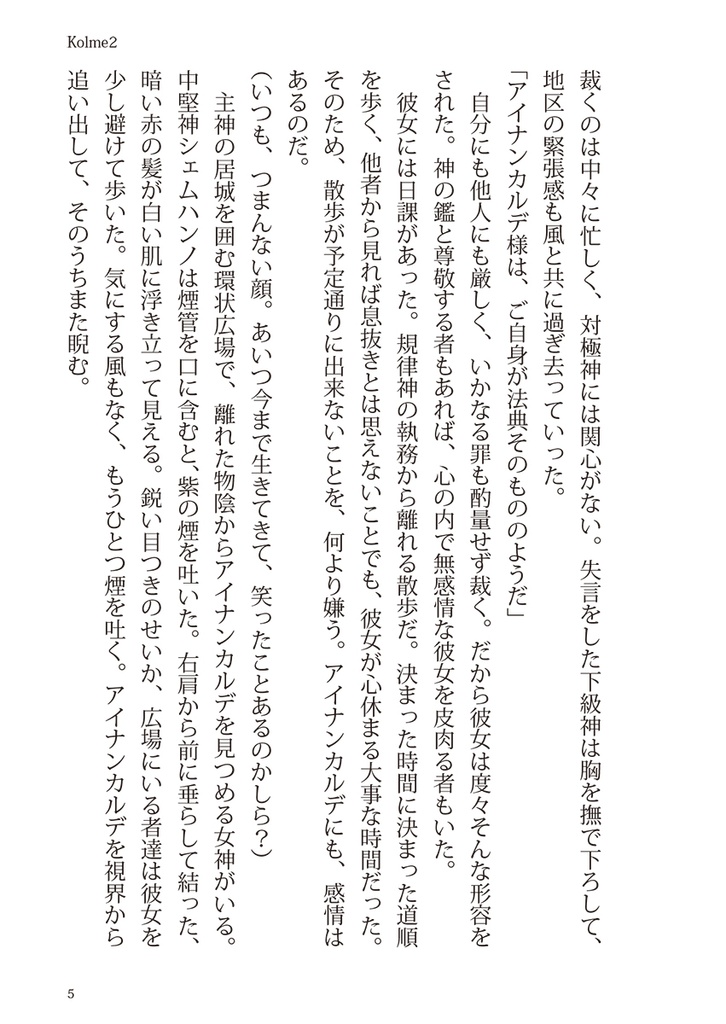 Kolme2
裁くのは中々に忙しく、対極神には関心がない。失言をした下級神は胸を撫で下ろして、
地区の緊張感も風と共に過ぎ去っていった。
「アイナンカルデ様は、ご自身が法典そのもののようだ」
　自分にも他人にも厳しく、いかなる罪も酌量せず裁く。だから彼女は度々そんな形容を
された。神の鑑と尊敬する者もあれば、心の内で無感情な彼女を皮肉る者もいた。
　彼女には日課があった。規律神の執務から離れる散歩だ。決まった時間に決まった道順
を歩く、他者から見れば息抜きとは思えないことでも、彼女が心休まる大事な時間だった。
そのため、散歩が予定通りに出来ないことを、何より嫌う。アイナンカルデにも、感情は
あるのだ。
（いつも、つまんない顔。あいつ今まで生きてきて、笑ったことあるのかしら？）
　主神の居城を囲む環状広場で、離れた物陰からアイナンカルデを見つめる女神がいる。
中堅神シェムハンノは煙管を口に含むと、紫の煙を吐いた。右肩から前に垂らして結った、
暗い赤の髪が白い肌に浮き立って見える。鋭い目つきのせいか、広場にいる者達は彼女を
少し避けて歩いた。気にする風もなく、もうひとつ煙を吐く。アイナンカルデを視界から
追い出して、そのうちまた睨む。
5